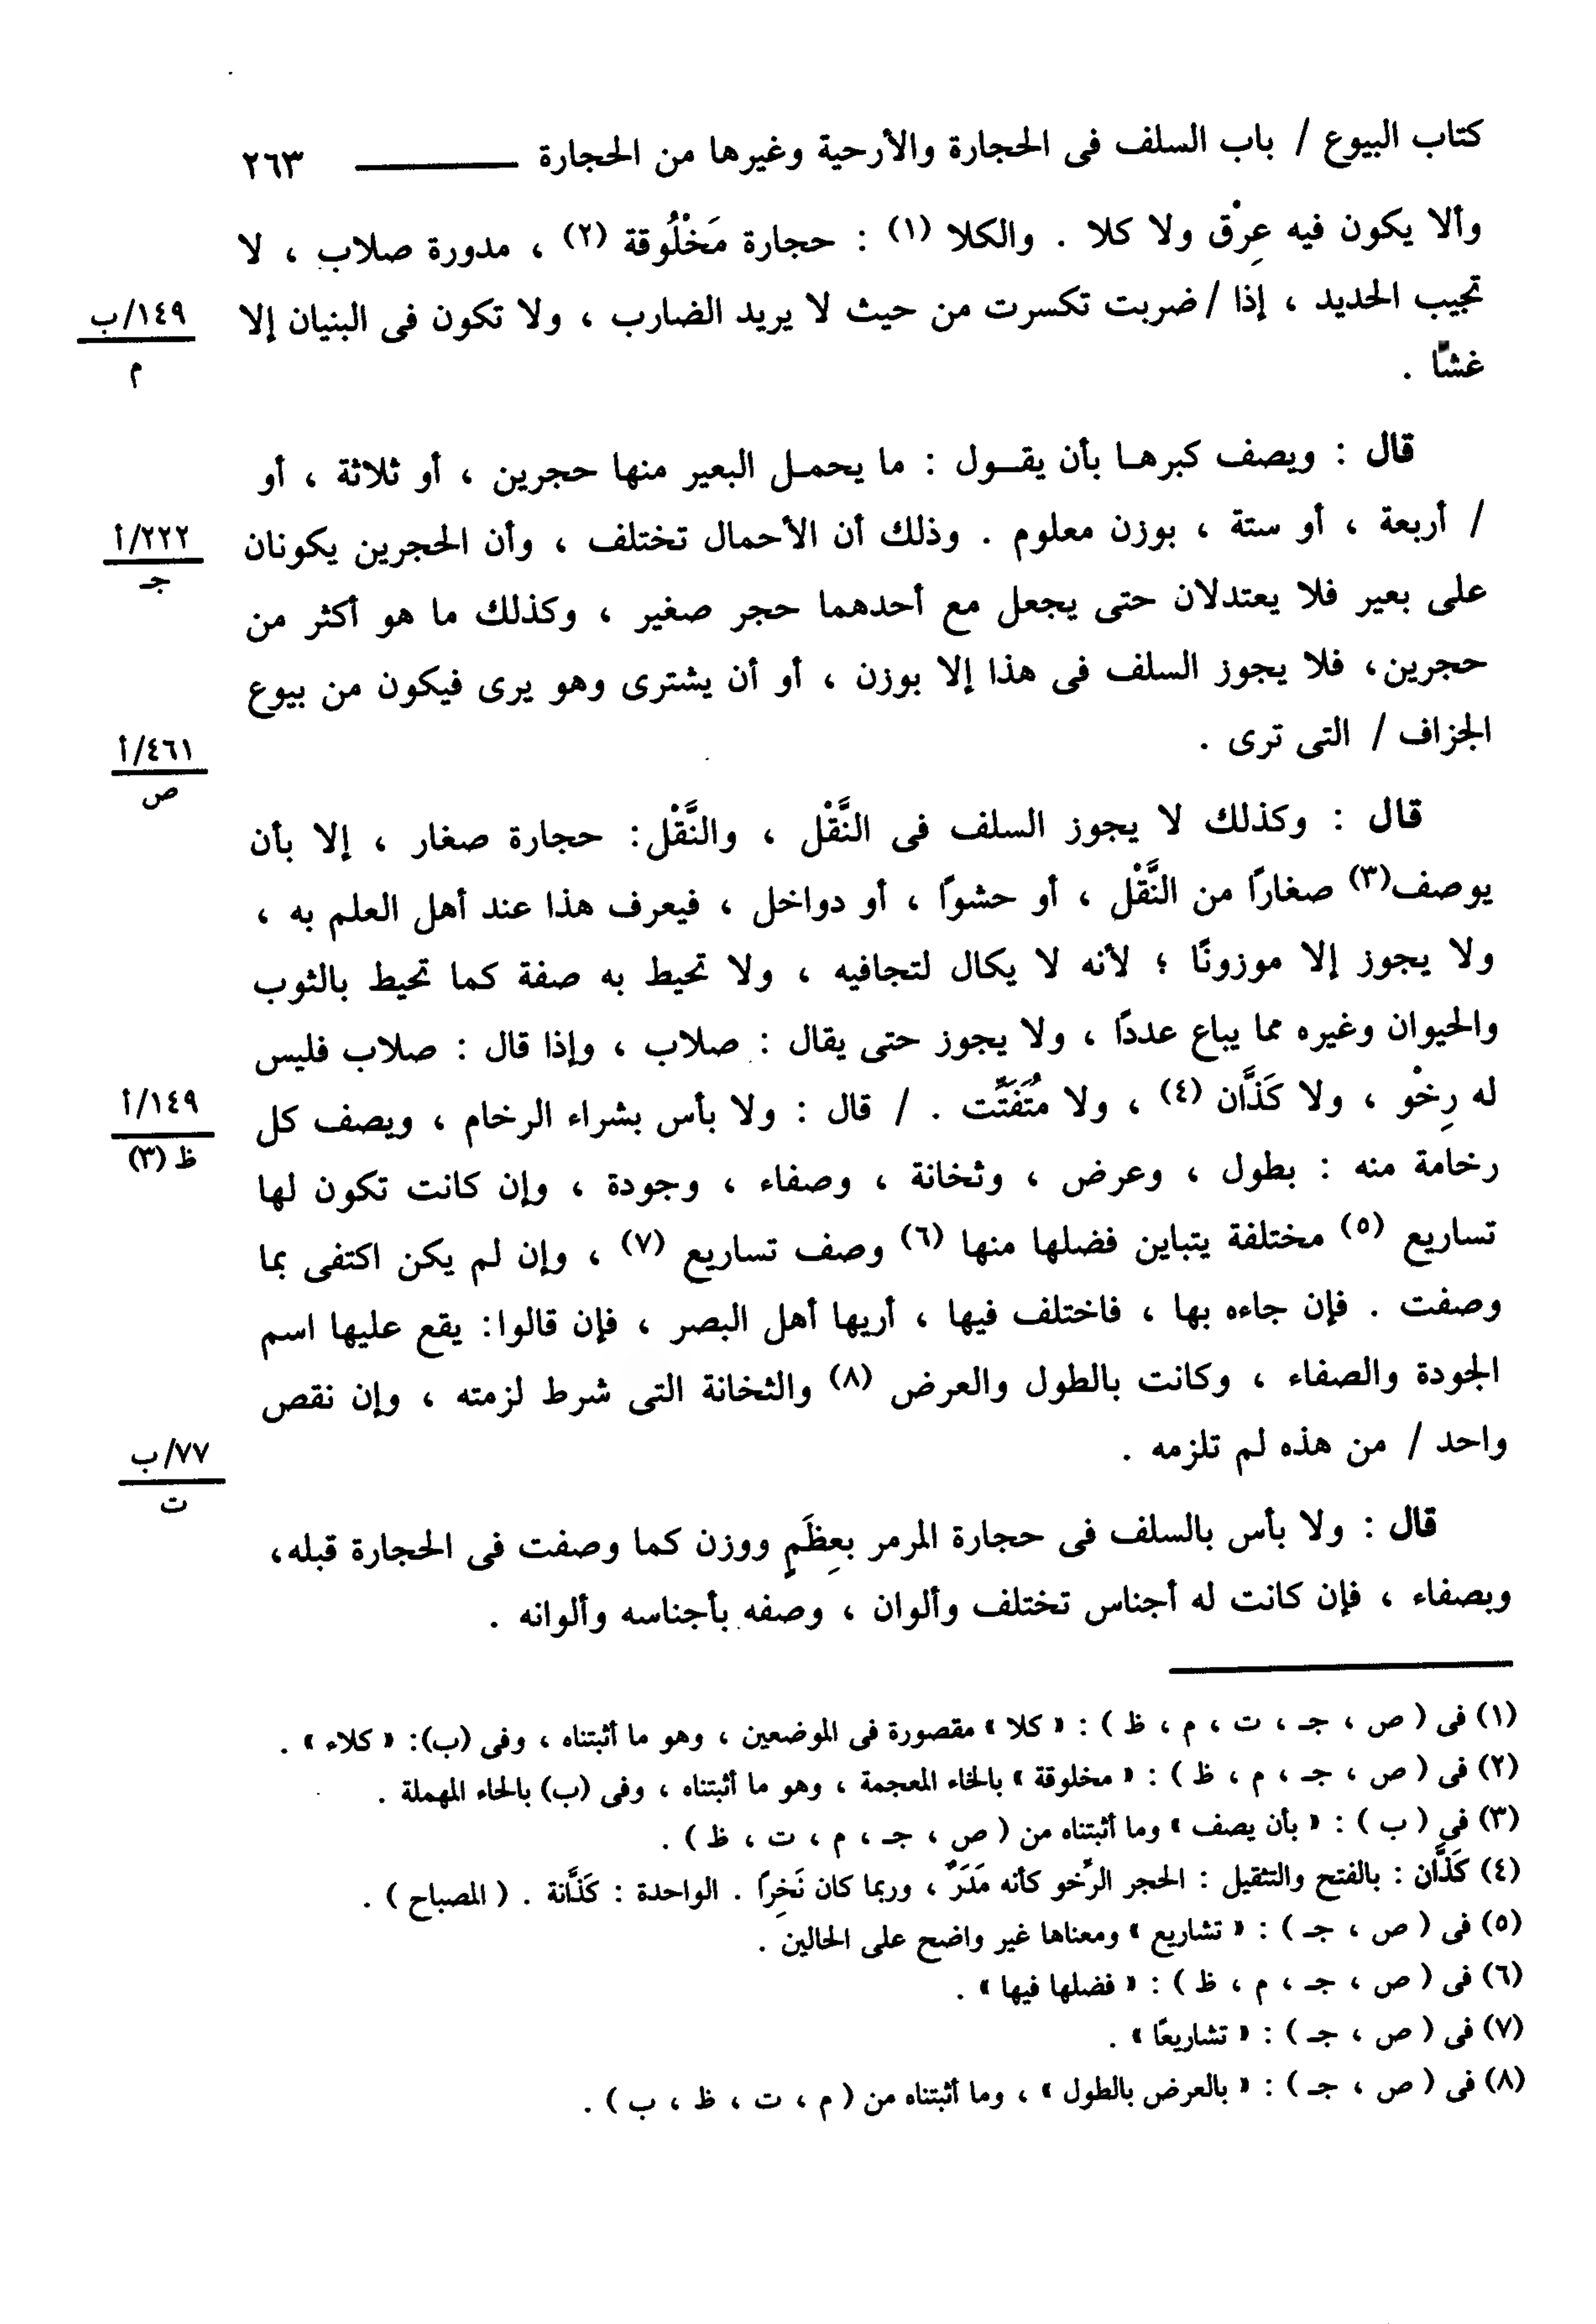 كتاب البيوع / باب السلف فى الحجارة والأرحية وغيرها من الحجارة ـــــــــ ٢٦٣
وألا يكون فيه عِرْق ولا كلا . والكلا (١) : حجارة مَخْلُوقة (٢) ، مدورة صلاب ، لا
تجيب الحديد ، إذا / ضربت تكسرت من حيث لا يريد الضارب ، ولا تكون فى البنيان إلا
١٤٩/ب
م
غشًا .
قال : ويصف كبرهـا بأن يقــول : ما يحمـل البعير منها حجرين ، أو ثلاثة ، أو
/ أربعة ، أو ستة ، بوزن معلوم . وذلك أن الأحمال تختلف ، وأن الحجرين يكونان
٢٢٢/أ
جـ
على بعير فلا يعتدلان حتى يجعل مع أحدهما حجر صغير ، وكذلك ما هو أكثر من
حجرين، فلا يجوز السلف فى هذا إلا بوزن ، أو أن يشترى وهو يرى فيكون من بيوع
الجزاف / التى ترى .
٤٦١/أ
ص
قال : وكذلك لا يجوز السلف فى النَّقْل ، والنَّقْل: حجارة صغار ، إلا بأن
يوصف(٣) صغارًا من النَّقْل ، أو حشوًا ، أو دواخل ، فيعرف هذا عند أهل العلم به ،
ولا يجوز إلا موزونًا ؛ لأنه لا يكال لتجافيه ، ولا تحيط به صفة كما تحيط بالثوب
والحيوان وغيره مما يباع عددًا ، ولا يجوز حتى يقال : صلاب ، وإذا قال : صلاب فليس
له رِخْو ، ولا كَذَّان (٤) ، ولا مُتَفَتِّت . / قال : ولا بأس بشراء الرخام ، ويصف كل
١٤٩/أ
ظ (٣)
رخامة منه : بطول ، وعرض ، وثخانة ، وصفاء ، وجودة ، وإن كانت تكون لها
تساريع (٥) مختلفة يتباين فضلها منها (٦) وصف تساريع (٧) ، وإن لم يكن اكتفى بما
وصفت . فإن جاءه بها ، فاختلف فيها ، أريها أهل البصر ، فإن قالوا: يقع عليها اسم
الجودة والصفاء ، وكانت بالطول والعرض (٨) والثخانة التى شرط لزمته ، وإن نقص
واحد / من هذه لم تلزمه .
٧٧/ب
ت
قال : ولا بأس بالسلف فى حجارة المرمر بعِظَمٍ ووزن كما وصفت فى الحجارة قبله،
وبصفاء ، فإن كانت له أجناس تختلف وألوان ، وصفه بأجناسه وألوانه .
(١) فى ( ص ، جـ ، ت ، م ، ظ ) : « كلا » مقصورة فى الموضعين ، وهو ما أثبتناه ، وفى (ب): « كلاء » .
(٢) فى ( ص ، جـ ، م ، ظ ) : « مخلوقة » بالخاء المعجمة ، وهو ما أثبتناه ، وفى (ب) بالحاء المهملة .
(٣) فى ( ب ) : « بأن يصف » وما أثبتناه من ( ص ، جـ ، م ، ت ، ظ ) .
(٤) كَذَّان : بالفتح والتثقيل : الحجر الرِّخو كأنه مَدَرٌ ، وربما كان نَخِرًا . الواحدة : كَذَّانة . ( المصباح ) .
(٥) فى ( ص ، جـ ) : « تشاريع » ومعناها غير واضح على الحالين .
(٦) فى ( ص ، جـ ، م ، ظ ) : « فضلها فيها » .
(٧) فى ( ص ، جـ ) : « تشاريعًا » .
(٨) فى ( ص ، جـ ) : « بالعرض بالطول » ، وما أثبتناه من ( م ، ت ، ظ ، ب ) .